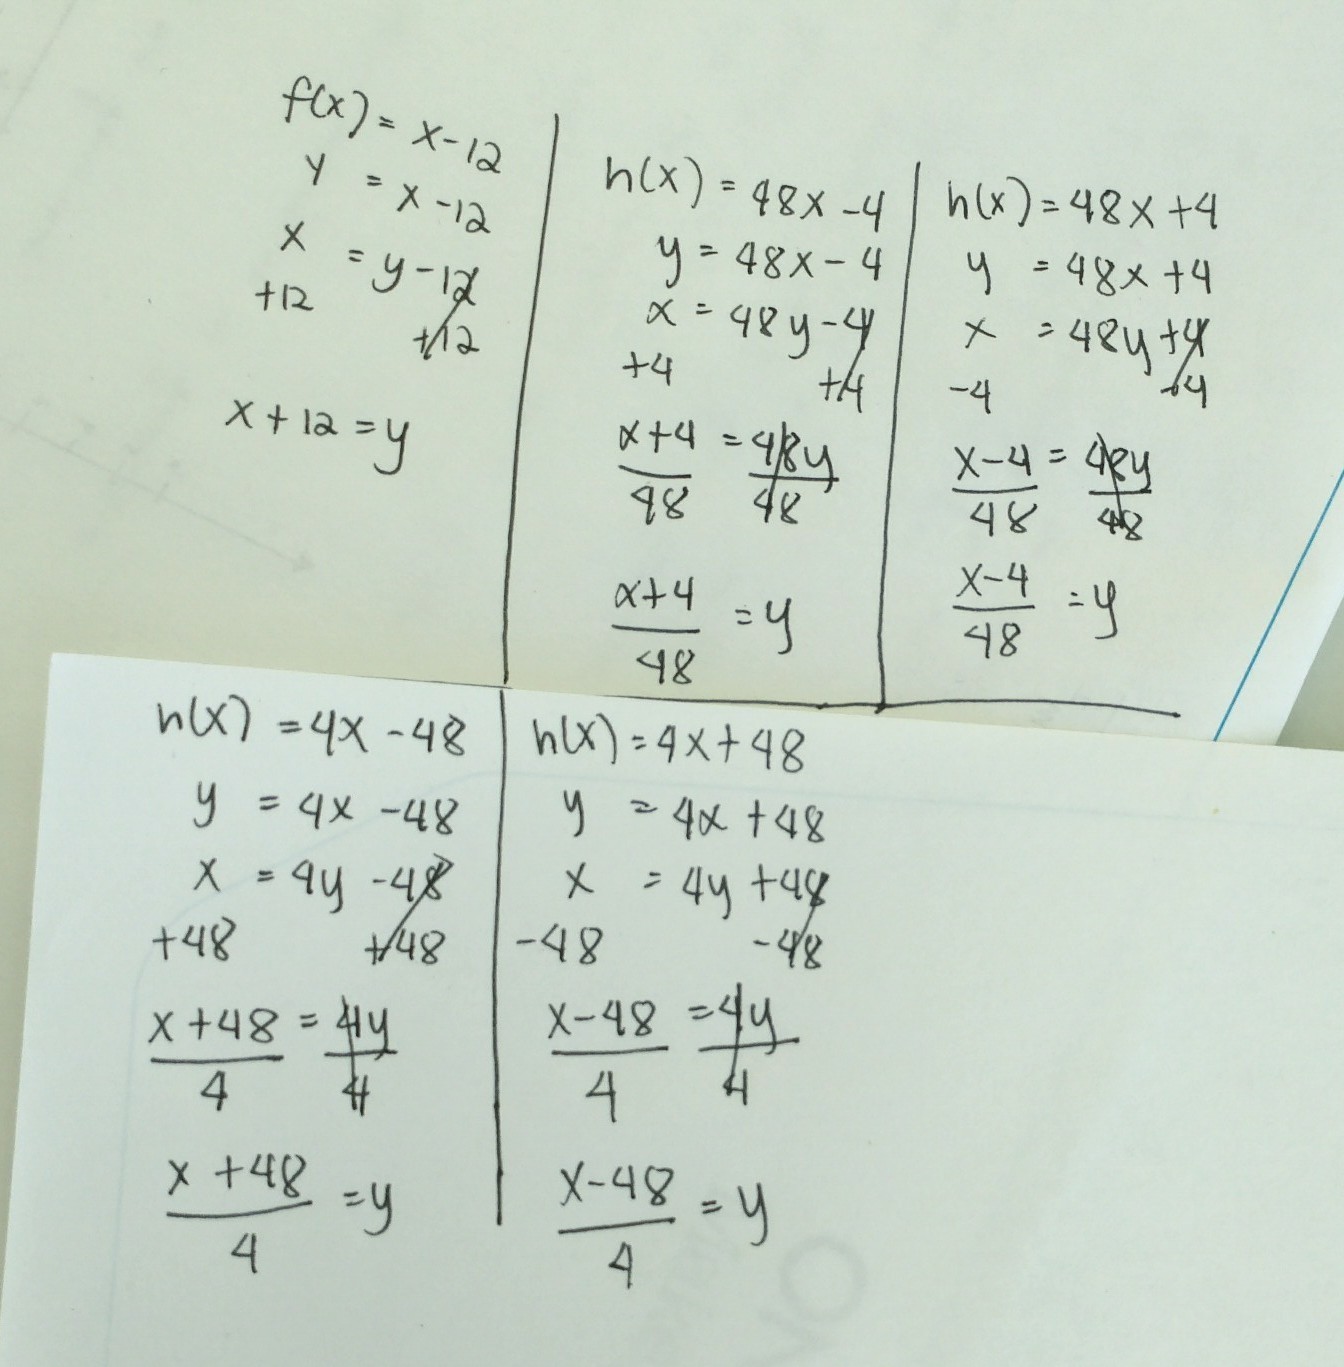 f(x) = x-12
y = x-12
x = y-12
+12 +12
x+12 = y
h(x) = 48x-4
y = 48x-4
x = 48y-4
+4 +4
x+4 = 48y
48 48
x+4 = y
48
h(x) = 48x+4
y = 48x+4
x = 48y+4
-4 -4
x-4 = 48y
48 48
x-4 = y
48
h(x) = 4x-48
y = 4x-48
x = 4y-48
+48 +48
x+48 = 4y
4 4
x+48 = y
4
h(x) = 4x+48
y = 4x+48
x = 4y+48
-48 -48
x-48 = 4y
4 4
x-48 = y
4